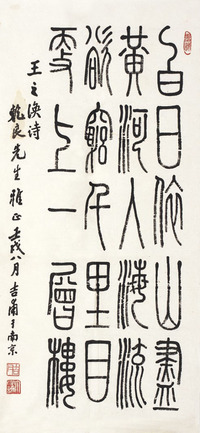 白日依山盡
黄河入海流
欲窮千里目
更上一層樓
王之渙诗
良先生雅正壬戌八月吉甫于南京